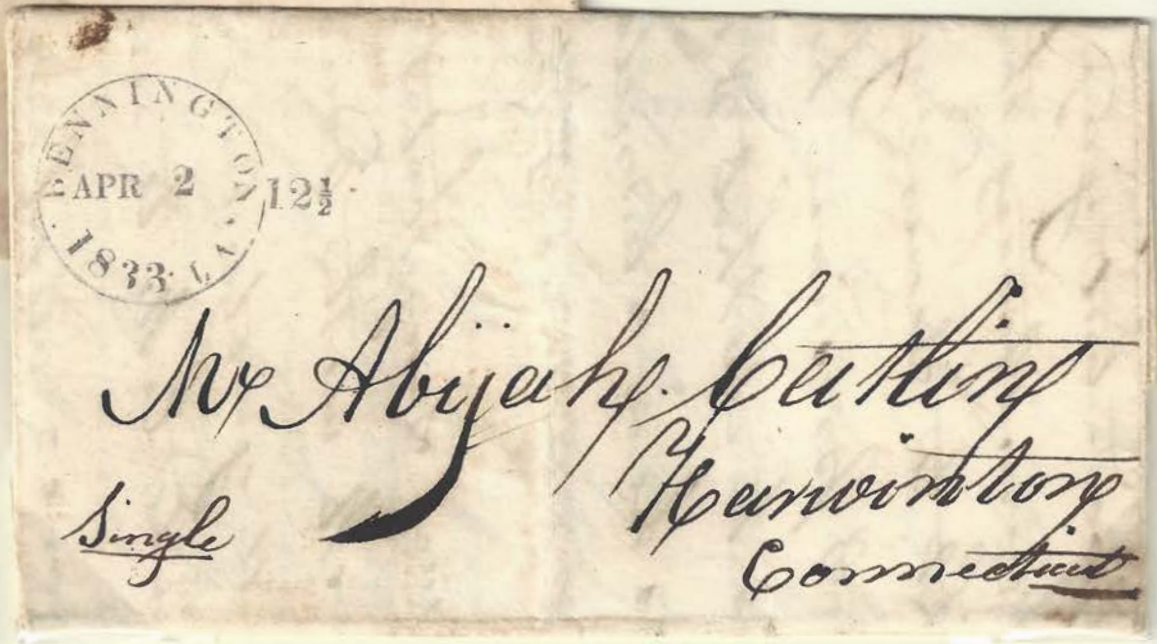 BENNINGTON. VT
APR 2
1833
12½
Mr Abijah. Catlin
Harwinton
Connecticut
Single